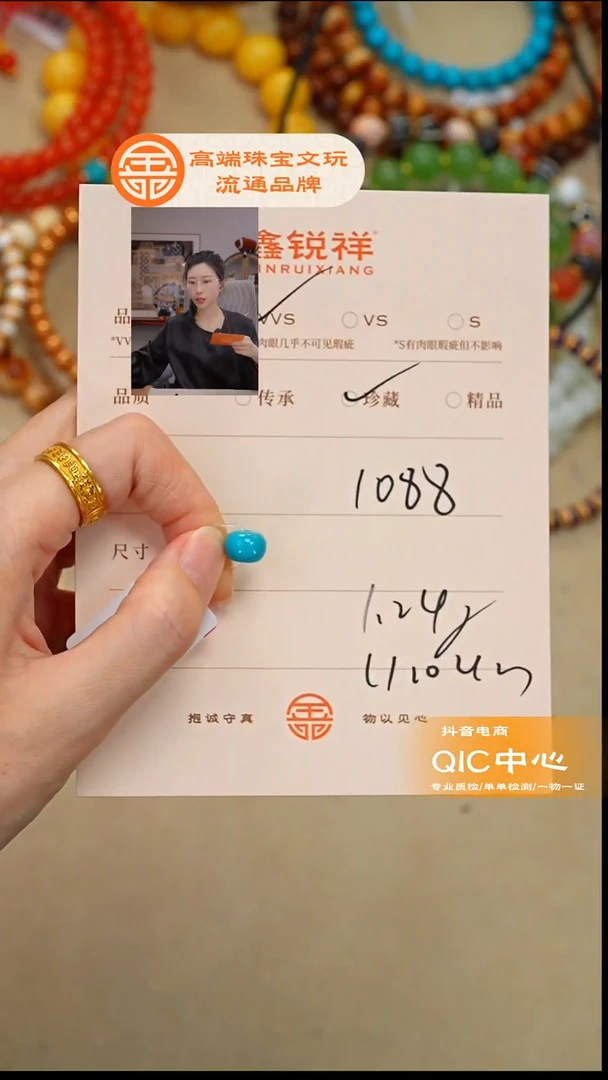 高端珠宝文玩
流通品牌
鑫锐祥
INRUIXIANG
品
VVS
VS
S
*VV
肉眼几乎不可见瑕疵
*S有肉眼瑕疵但不影响
品质
传承
珍藏
精品
1088
尺寸
1.24g
抱诚守真
物以见心
抖音电商
QIC中心
专业质检/单单检测/一物一证